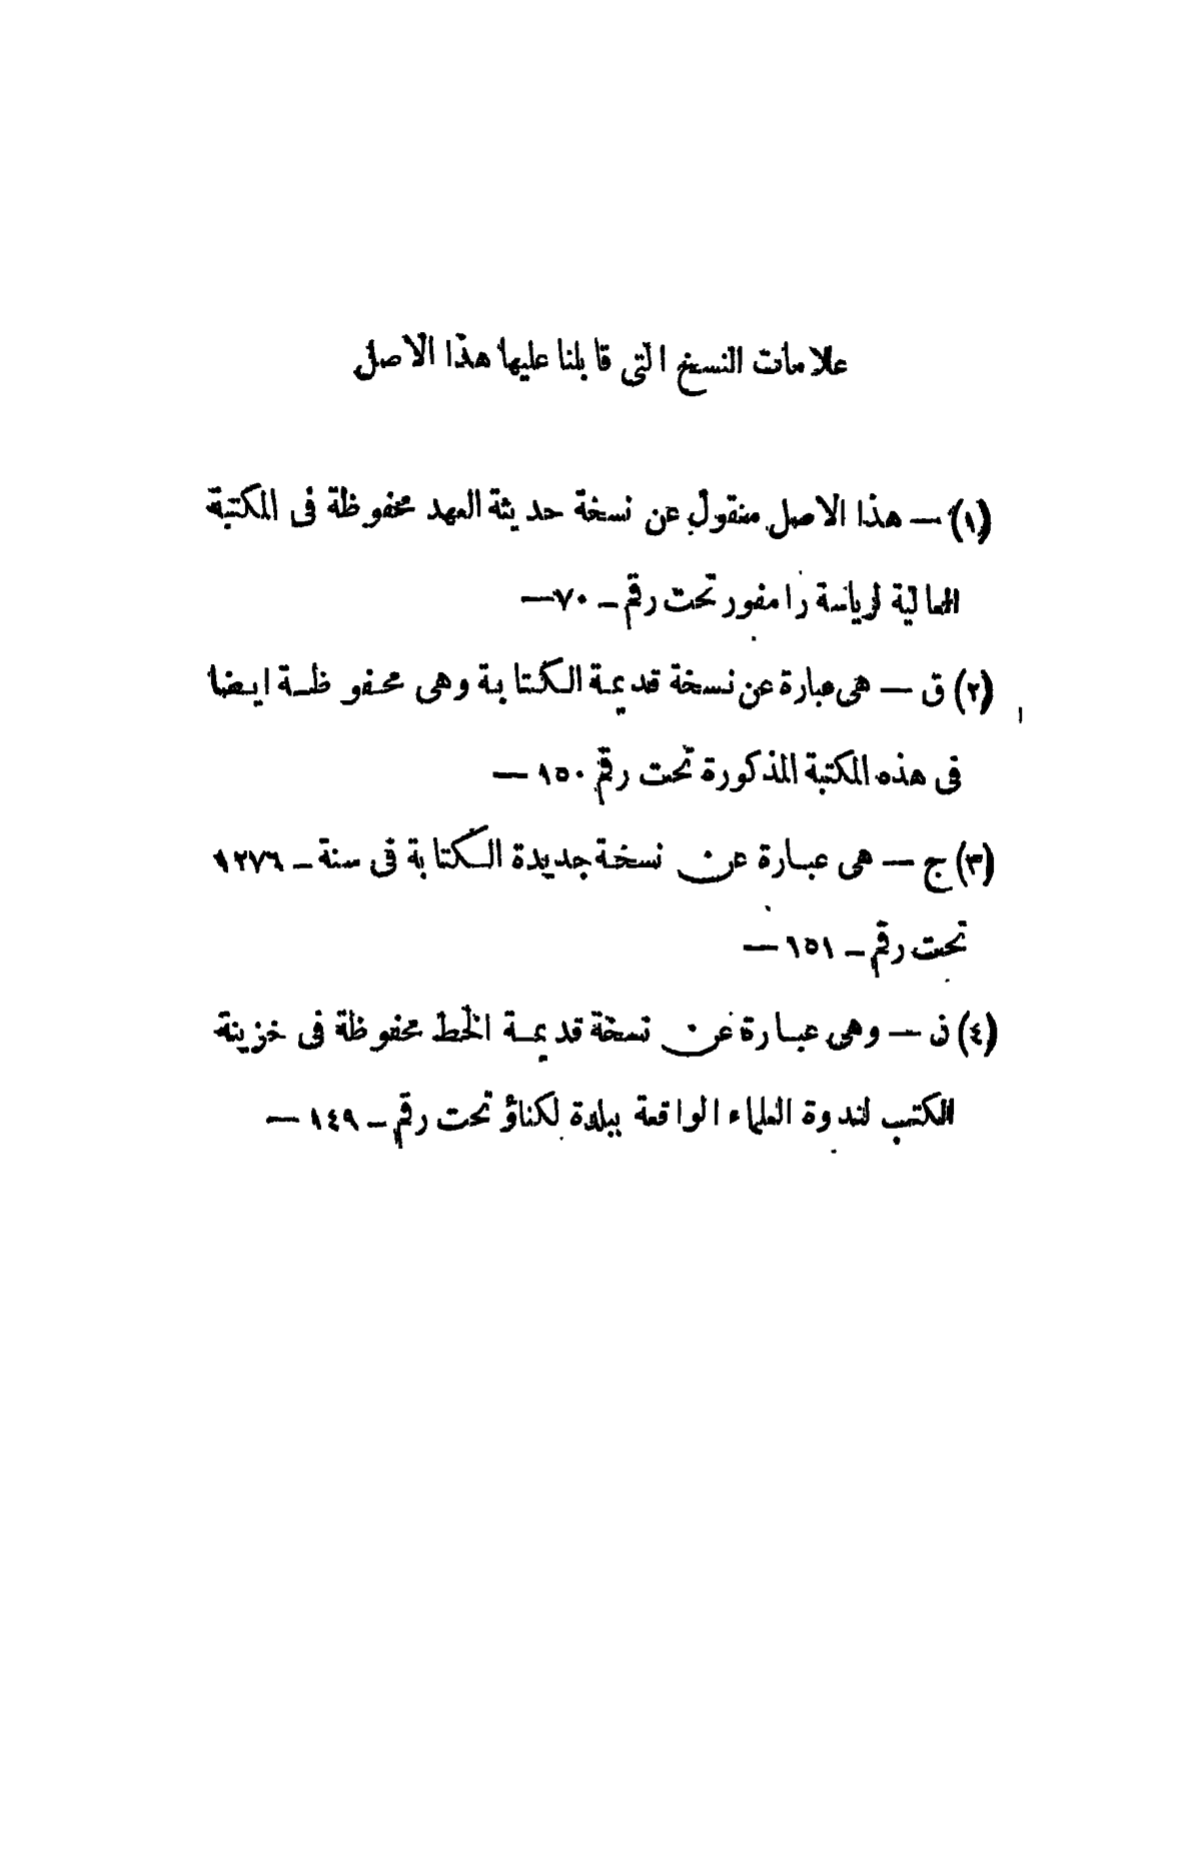 علامات النسخ التى قابلنا عليها هذا الاصل
(١) — هذا الاصل منقول عن نسخة حديثة العهد محفوظة فى المكتبة
العالية لرياسة رامفور تحت رقم – ٧٠ —
(٢) ق — هى عبارة عن نسخة قديمة الكتابة وهى محفوظة ايضا
فى هذه المكتبة المذكورة تحت رقم ١٥٠ —
(٣) ج — هى عبارة عن نسخة جديدة الكتابة فى سنة – ١٢٧٦
تحت رقم – ١٥١ —
(٤) ن — وهى عبارة عن نسخة قديمة الخط محفوظة فى خزينة
الكتب لندوة العلماء الواقعة ببلدة لكناؤ تحت رقم – ١٤٩ —